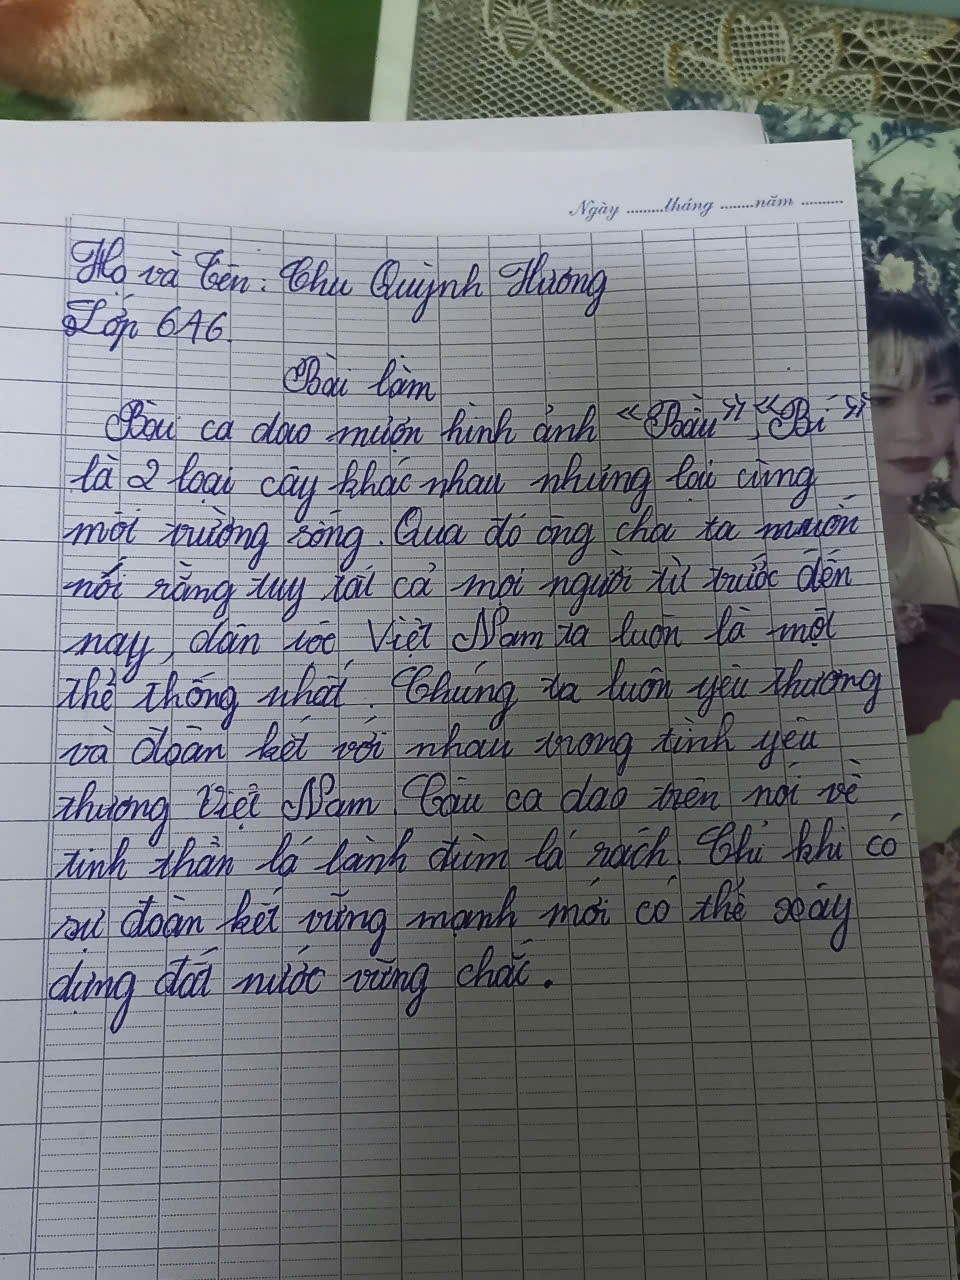 Ngày .........tháng ........năm ..........
Họ và tên: Chu Quỳnh Hương
Lớp 6A6.
Bài làm
Bài ca dao mượn hình ảnh "Bầu", "Bí"
là 2 loại cây khác nhau nhưng lại cùng
môi trường sống. Qua đó ông cha ta muốn
nói rằng tuy tất cả mọi người từ trước đến
nay, dân tộc Việt Nam ta luôn là một
thể thống nhất. Chúng ta luôn yêu thương
và đoàn kết với nhau trong tình yêu
thương Việt Nam. Câu ca dao trên nói về
tinh thần lá lành đùm lá rách. Chỉ khi có
sự đoàn kết vững mạnh mới có thể xây
dựng đất nước vững chắc.